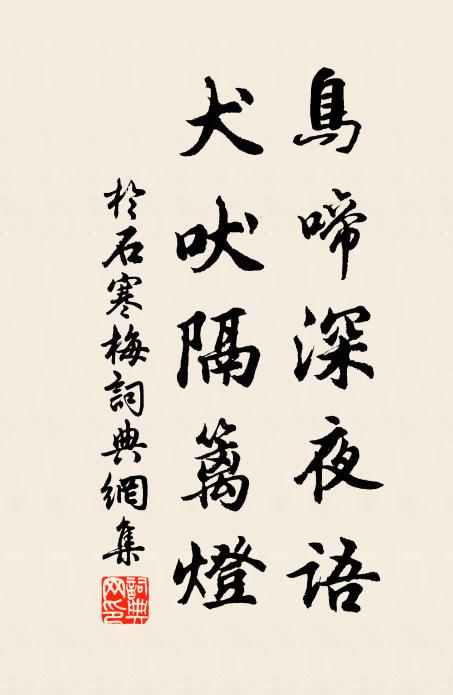 鳥啼深夜語
犬吠隔籬燈
於石寒梅詞典網集
詞典网印